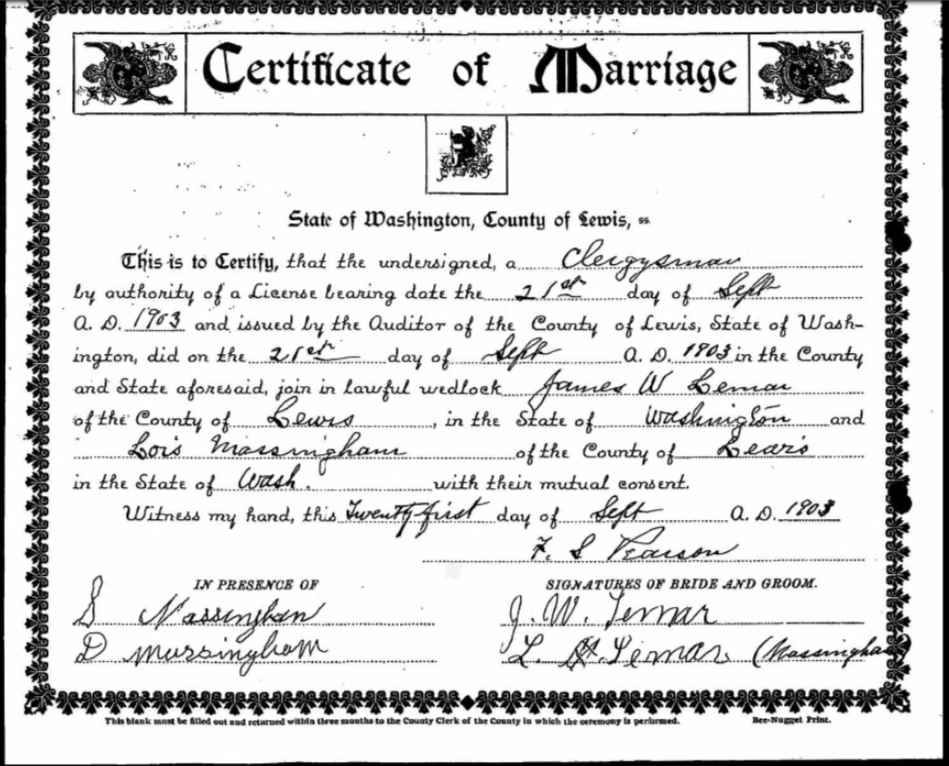 Certificate of Marriage
State of Washington, County of Lewis, ss.
This is to Certify, that the undersigned, a Clergysman
by authority of a License bearing date the 21st day of Sept
A. D. 1903 and issued by the Auditor of the County of Lewis, State of Wash-
ington, did on the 21st day of Sept A. D. 1903 in the County
and State aforesaid, join in lawful wedlock James W Lemar
of the County of Lewis, in the State of Washington and
Lois Massingham of the County of Lewis
in the State of Wash. with their mutual consent.
Witness my hand, this Twenty first day of Sept A. D. 1903
F. S Pearson
IN PRESENCE OF
SIGNATURES OF BRIDE AND GROOM.
S Massingham
J. W. Lemar
D Massingham
L. Lemar (Massingham)
This blank must be filled out and returned within three months to the County Clerk of the County in which the ceremony is performed.
Bee-Nugget Print.